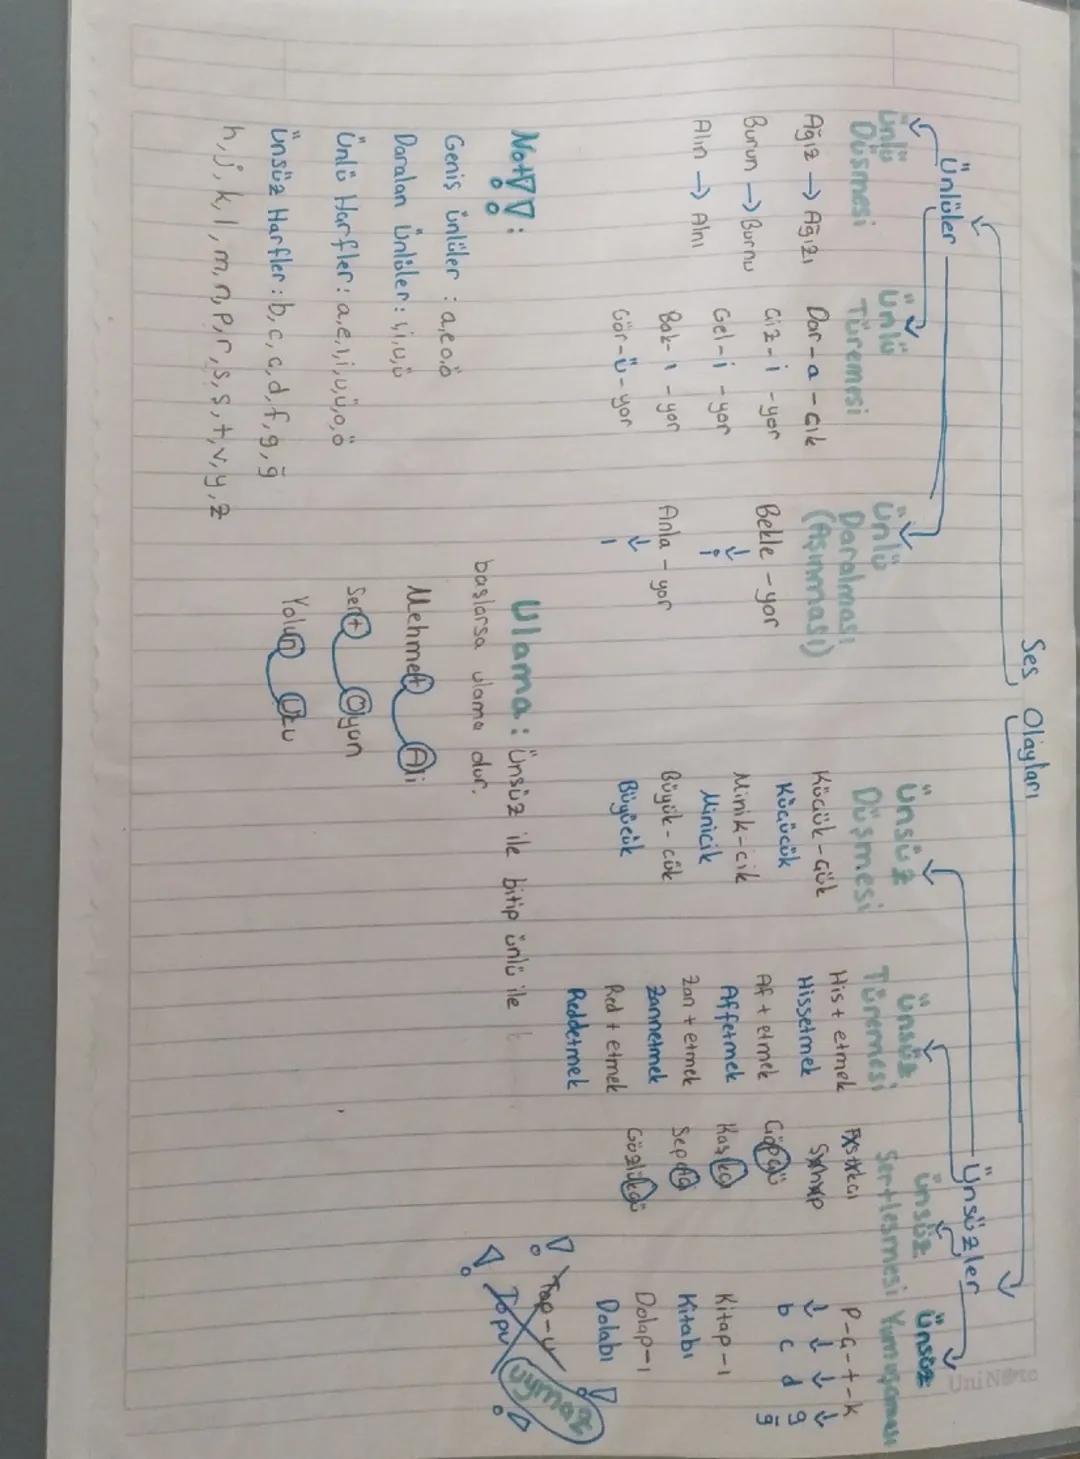 Ses Olayları
Ünlüler
Ünlü
Düşmesi
Ağız → Ağızı
Burun → Burnu
Alın → Alnı
Ünlü
Türemesi
Dar - a - cık
Çiz - i - yor
Gel - i - yor
Bak - ı - yor
Gör - ü - yor
Ünlü
Daralması
(Aşınması)
Bekle - yor
↓
i
Anla - yor
↓
ı
Not!! :
Geniş ünlüler : a,e,o,ö
Daralan ünlüler : ı,i,u,ü
Ünlü Harfler : a,e,ı,i,u,ü,o,ö
Ünsüz Harfler : b, c, ç, d, f, g, ğ
h, j, k, l, m, n, p, r, s, ş, t, v, y, z
Ulama : Ünsüz ile bitip ünlü ile
başlarsa ulama dır.
Mehmet Ali
Sert Oyun
Yolun Uzu
Ünsüzler
Ünsüz
Düşmesi
Küçük - çük
Küçücük
Minik - cik
Minicik
Büyük - cük
Büyücük
Ünsüz
Türemesi
His + etmek
Hissetmek
Af + etmek
Affetmek
Zan + etmek
Zannetmek
Red + etmek
Reddetmek
Ünsüz
Sertleşmesi
Ünsüz
Yumuşaması
P - ç - t - k
↓ ↓ ↓ ↓
b c d g
ğ
Kitap - ı
Kitabı
Dolap - ı
Dolabı
Top - u
Topu
uymaz
UniNote